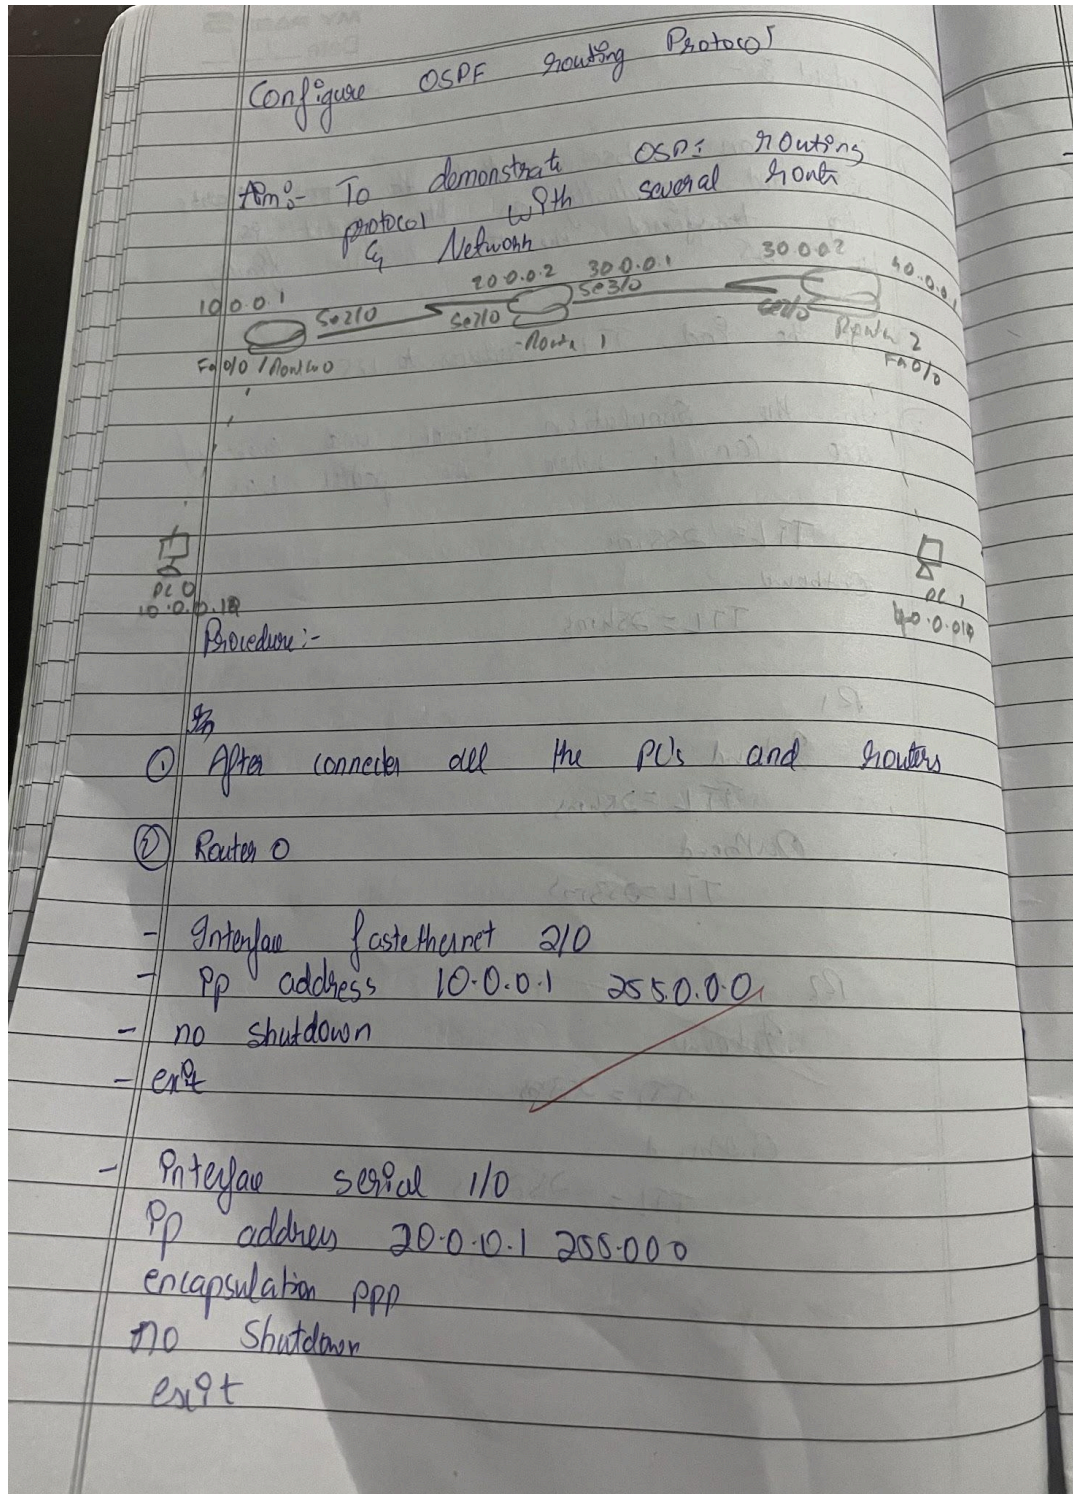 Configure OSPF routing Protocol
Aim:- To demonstrate OSPF routing
protocol with several route
& Network
10.0.0.1 20.0.0.2 30.0.0.1 30.0.0.2 40.0.0.1
Se2/0 Se2/0 Se3/0 Se2/0
Fa0/0 Router 0 Route 1 Router 2
Fa0/0
PC 0
10.0.0.10
PC 1
40.0.010
Procedure:-
① After connecter all the PC's and routers
② Router 0
- Interface fastethernet 2/0
- ip address 10.0.0.1 255.0.0.0
- no shutdown
- exit
- interface serial 1/0
ip address 20.0.0.1 255.000
encapsulation ppp
no shutdown
exit